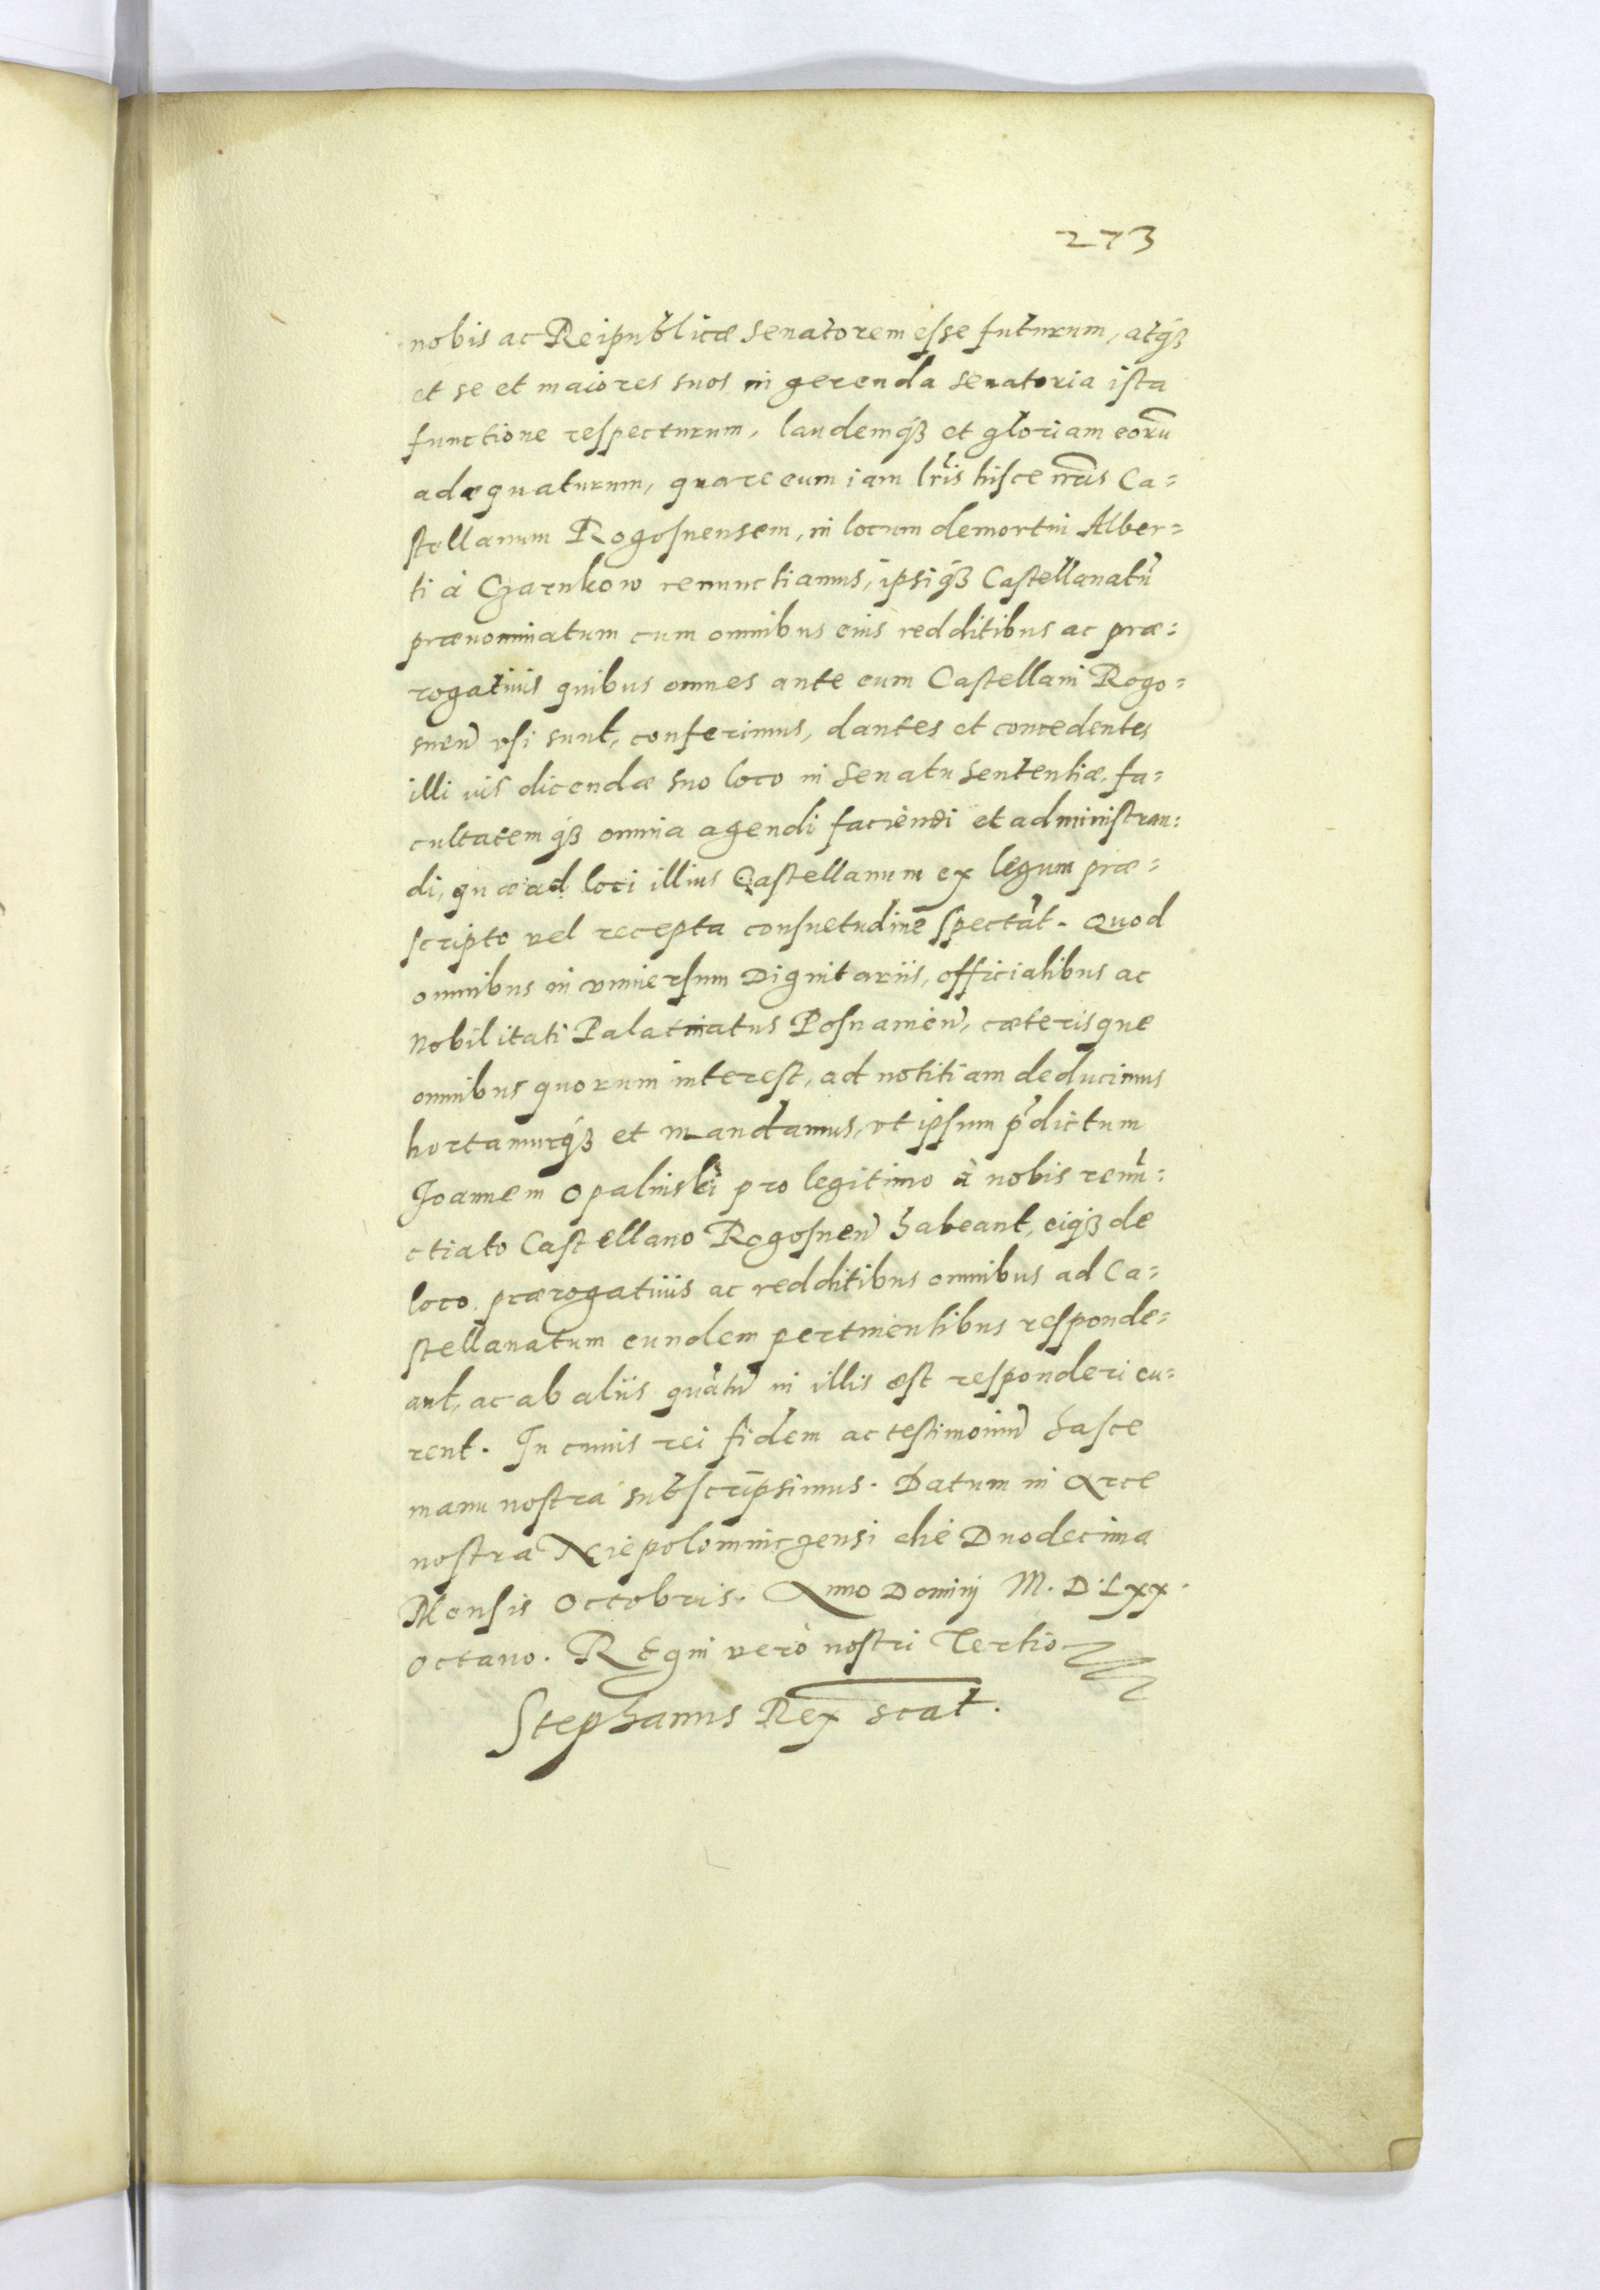 273
nobis ac Reipublicæ Senatorem esse futurum, atq́ꝫ
et se et maiores suos in gerenda senatoria ista
functione respecturum, laudemq́ꝫ et gloriam eorũ
adæquaturum, quare eum iam lr̃is hisce nr̃is Ca=
stellanum Rogosnensem, in locum demortui Alber=
ti à Czarnkow renunctiamus, ipsiq́ꝫ Castellanatũ
prænominatum cum omnibus eius redditibus ac præ=
rogatiuis quibus omnes ante eum Castellani Rogo=
snen̄ vsi sunt, conferimus, dantes et concedentes
illi ius dicendæ suo loco in Senatu sententiæ, fa=
cultatemq́ꝫ omnia agendi faciendi et administran=
di, quæ ad loci illius Castellanum ex legum præ=
scripto vel recepta consuetudine spectãt. Quod
omnibus in vniuersum Dignitariis, officialibus ac
Nobilitati Palatinatus Posnamen̄, cæterisque
omnibus quorum interest, ad notitiam deducimus
hortamurq́ꝫ et mandamus, vt ipsum p̃dictum
Joannem Opalinski pro legitimo à nobis renũ=
ctiato Castellano Rogosnen̄ habeant, eiq́ꝫ de
loco prærogatiuis ac redditibus omnibus ad Ca=
stellanatum eundem pertinentibus responde=
ant, ac ab aliis quãtũ in illis est responderi cu=
rent. In cuius rei fidem ac testimoniũ hasce
manu nostra subscripsimus. Datum in Arce
nostra Niepolomiczensi die Duodecima
Mensis Octobris. Anno Domini M. D. Lxx.
Octauo. Regni verò nostri Tertio
Stephanus Rex scat.